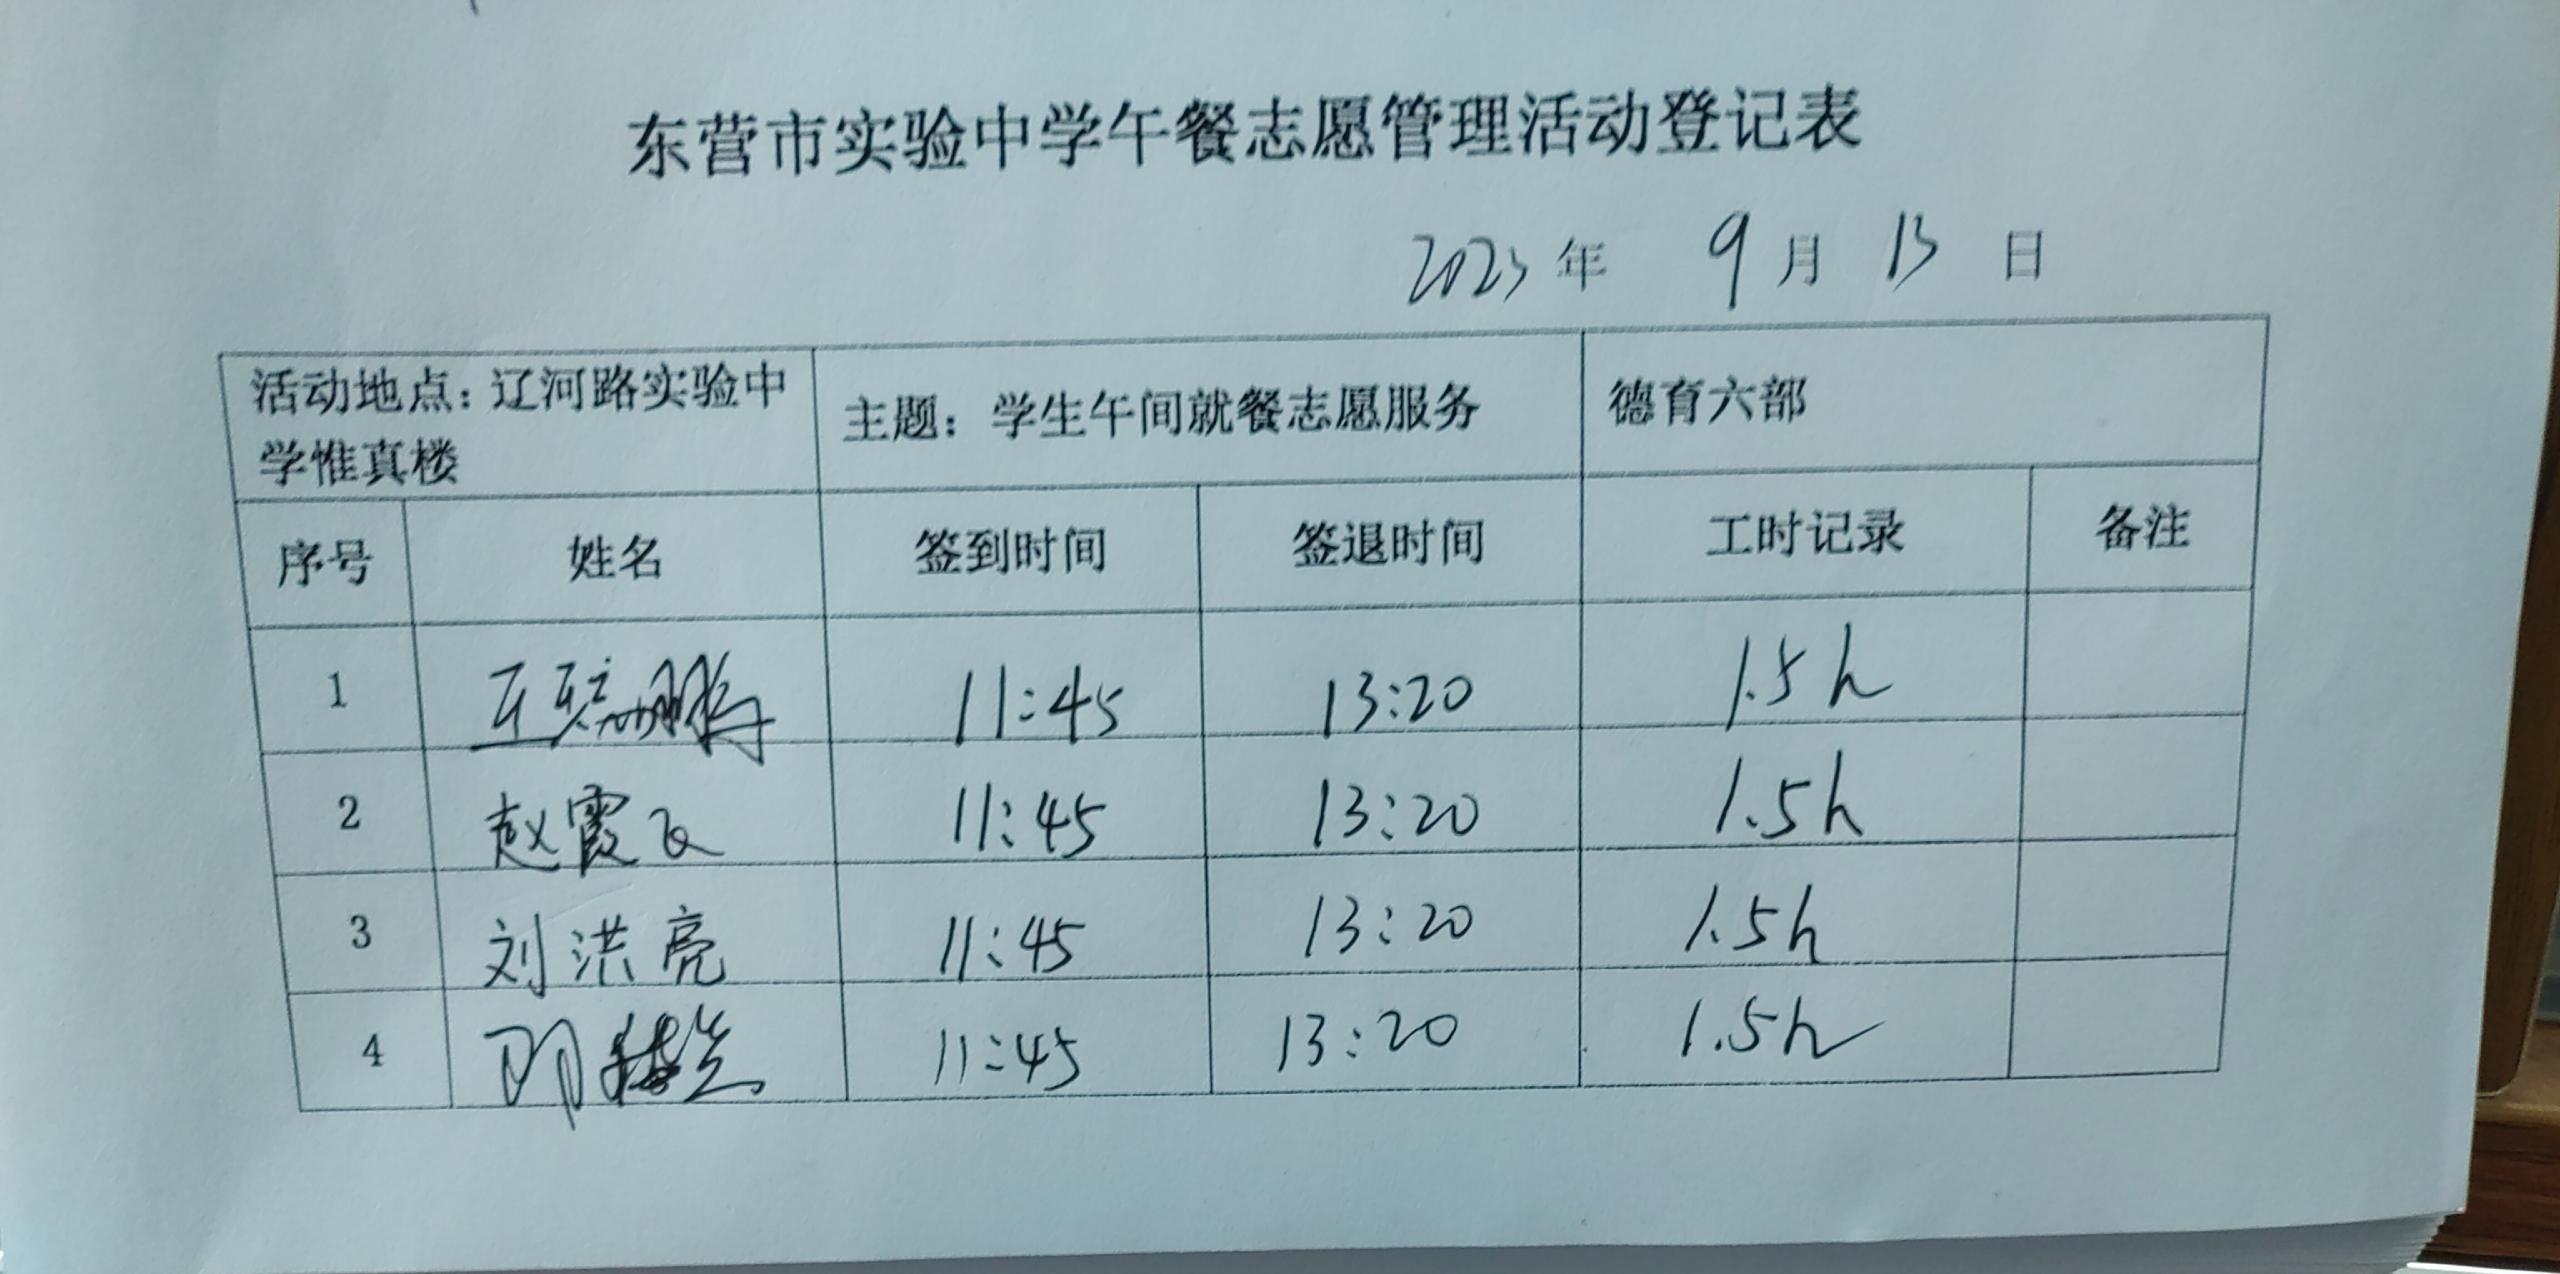 东营市实验中学午餐志愿管理活动登记表
2023年 9月 13日
活动地点：辽河路实验中
学惟真楼
主题：学生午间就餐志愿服务
德育六部
序号 姓名 签到时间 签退时间 工时记录 备注
1 11:45 13:20 1.5h
2 赵霞飞 11:45 13:20 1.5h
3 刘洪亮 11:45 13:20 1.5h
4 11:45 13:20 1.5h